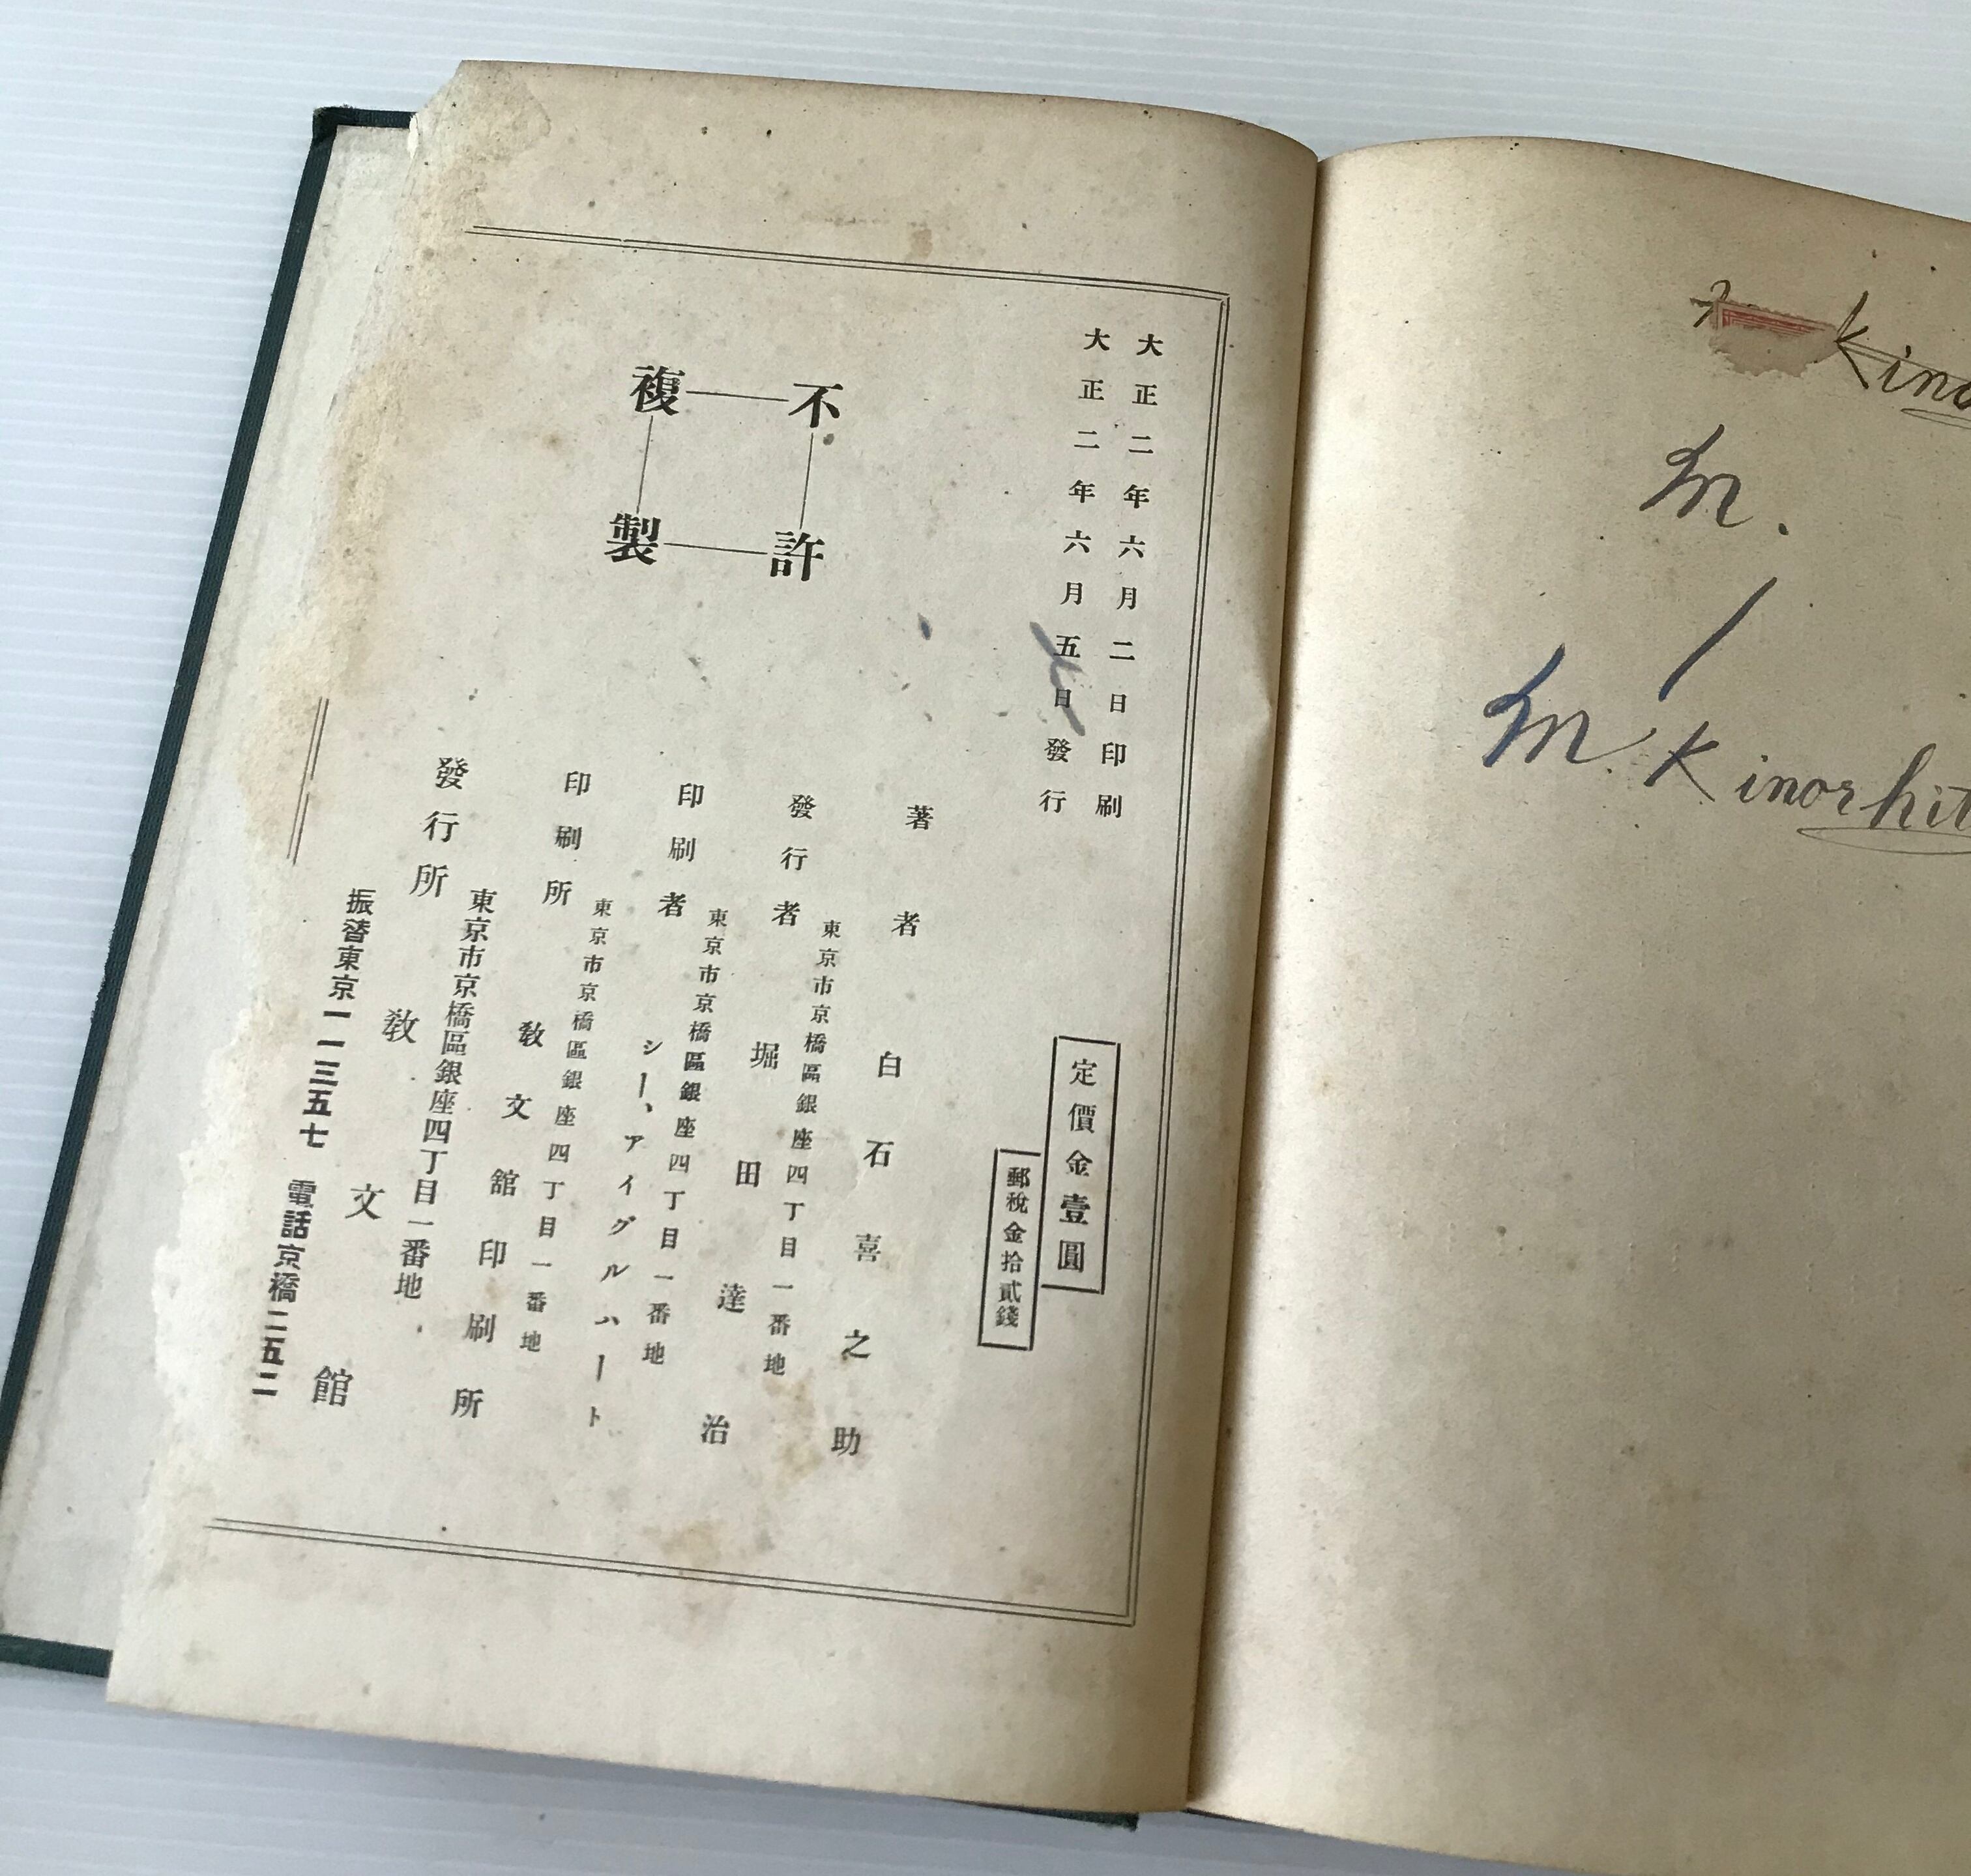 大正二年六月二日印刷
大正二年六月五日發行
定價金壹圓
郵稅金拾貳錢
不許複製
著者 白石喜之助
東京市京橋區銀座四丁目一番地
發行者 堀田達治
東京市京橋區銀座四丁目一番地
印刷者 シー、アイグルハート
東京市京橋區銀座四丁目一番地
印刷所 敎文舘印刷所
東京市京橋區銀座四丁目一番地
發行所 敎文館
振替東京一一三五七 電話京橋二五二
M.
M. Kinoshit